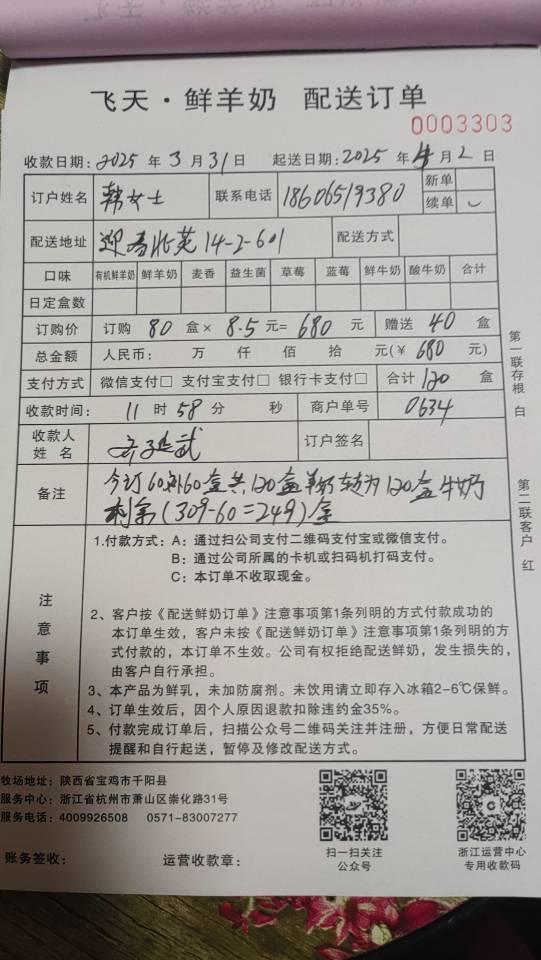 飞天·鲜羊奶 配送订单
0003303
收款日期：2025年3月31日 起送日期：2025年4月2日
订户姓名 韩女士 联系电话 18606519380 新单
续单
配送地址 14-2-601 配送方式
口味 有机鲜羊奶 鲜羊奶 麦香 益生菌 草莓 蓝莓 鲜牛奶 酸牛奶 合计
日定盒数
订购价 订购 80 盒× 8.5 元= 680 元 赠送 40 盒
总金额 人民币： 万 仟 佰 拾 元(¥ 680 元)
支付方式 微信支付□ 支付宝支付□ 银行卡支付□ 合计 120 盒
收款时间： 11 时 58 分 秒 商户单号 0634
收款人
姓 名 订户签名
备注 今订60补60盒共120盒羊奶转为120盒牛奶
剩余(309-60=249)盒
第一联存根 白
第二联客户 红
注意事项
1.付款方式：A：通过扫公司支付二维码支付宝或微信支付。
B：通过公司所属的卡机或扫码机打码支付。
C：本订单不收取现金。
2、客户按《配送鲜奶订单》注意事项第1条列明的方式付款成功的
本订单生效，客户未按《配送鲜奶订单》注意事项第1条列明的方
式付款的，本订单不生效。公司有权拒绝配送鲜奶，发生损失的，
由客户自行承担。
3、本产品为鲜乳，未加防腐剂。未饮用请立即存入冰箱2-6℃保鲜。
4、订单生效后，因个人原因退款扣除违约金35%。
5、付款完成订单后，扫描公众号二维码关注并注册，方便日常配送
提醒和自行起送，暂停及修改配送方式。
牧场地址：陕西省宝鸡市千阳县
服务中心：浙江省杭州市萧山区崇化路31号
服务电话：4009926508 0571-83007277
扫一扫关注
公众号
浙江运营中心
专用收款码
账务签收： 运营收款章：